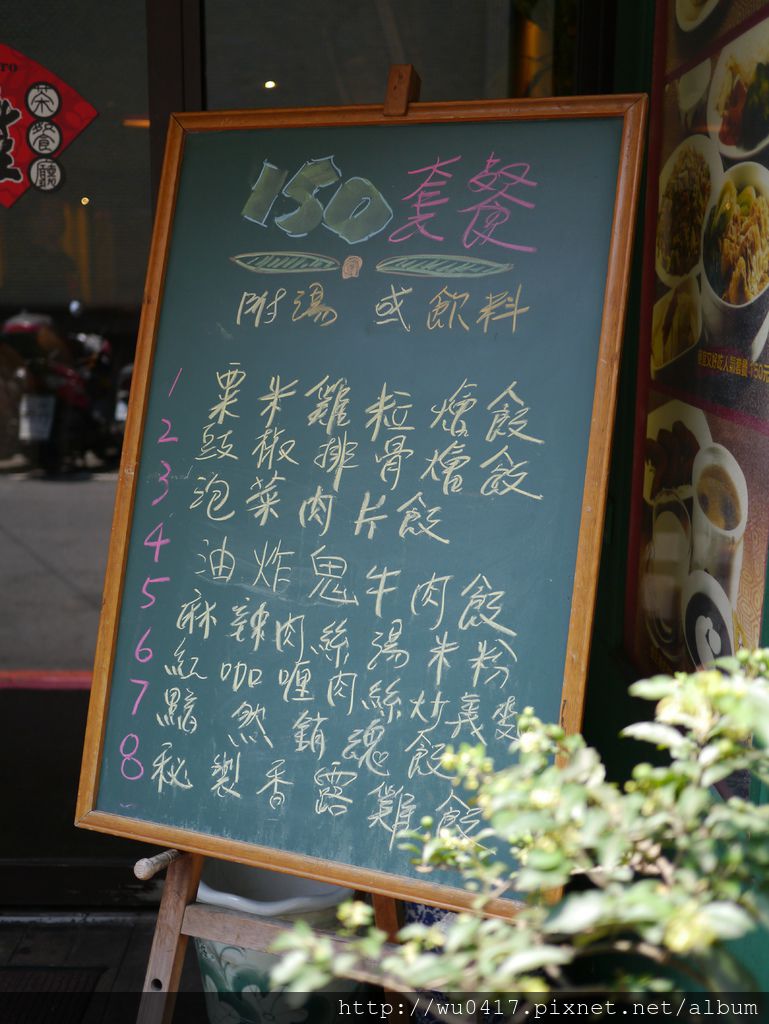 茶餐廳
150 套餐
附湯 或飲料
1 粟米雞粒燴飯
2 豉椒排骨燴飯
3 泡菜肉片飯
4 油炸鬼牛肉飯
5 麻辣肉絲湯米粉
6 紅咖喱肉絲炒義麥
7 黯然銷魂飯
8 秘製香露雞飯
150元
http://wu0417.pixnet.net/album